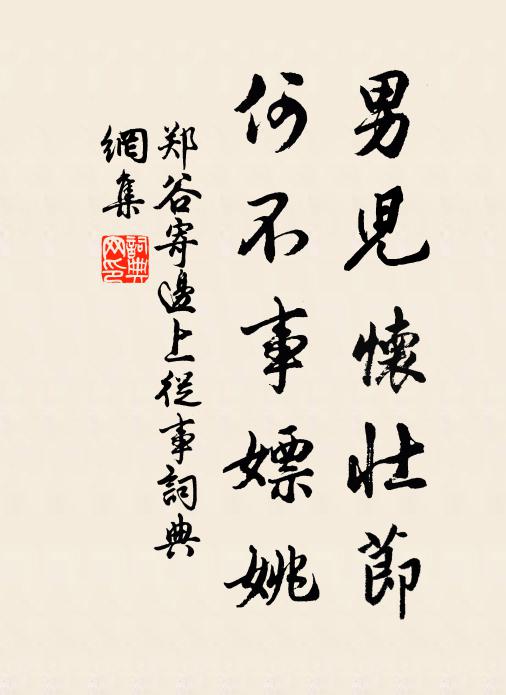 男児懷壮節
何不事嫖姚
郑谷寄邊上從事詞典
網集
詞典
网印